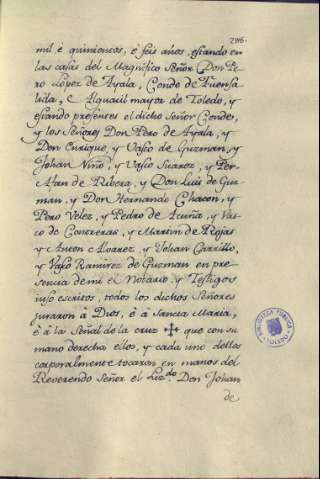 286.
mil è quinientos, è seis años, estando en
las casas del Magnifico Señor Don Pe-
ro Lopez de Ayala, Conde de Fuensa-
lida, e Alguacil mayor de Toledo, y
estando presentes el dicho Señor Conde,
y los Señores Don Pero de Ayala, y
Don Enrique, y Vasco de Guzman, y
Johan Niño, y Vasco Suarez, y Per-
Afan de Ribera, y Don Luis de Guz-
man, y Don Hernando Chacon, y
Pero Velez, y Pedro de Acuña, y Vas-
co de Contreras, y Martin de Rojas
y Anton Alvarez, y Johan Carrillo,
y Vasco Ramirez de Guzman en pre-
sencia de mi el Notario, y Testigos
inso escritos, todos los dichos Señores
juraron à Dios, è à Sancta Maria,
è à la Señal de la cruz ✝ que con su
mano derecha ellos, y cada uno dellos
corporalmente tocaron en manos del
Reverendo Señor el Liz.do Don Johan
de
BIBLIOTECA PUBLICA
TOLEDO